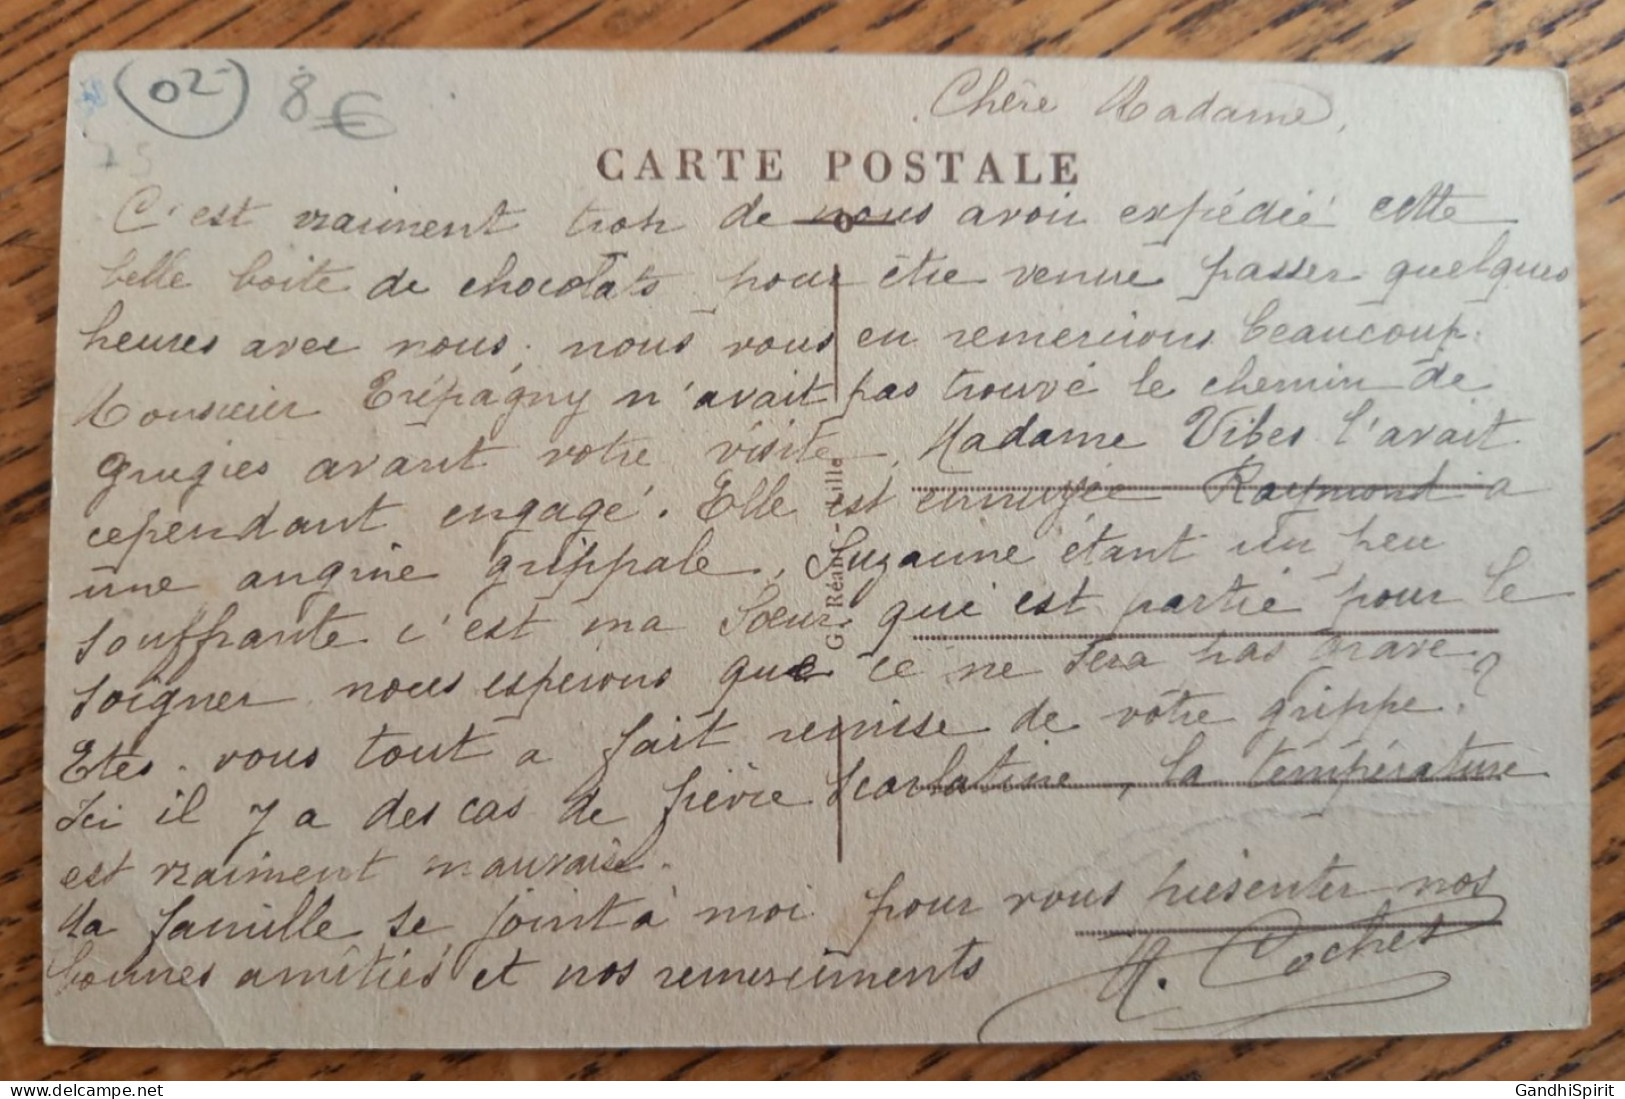 (02) 8€
Chère Madame,
CARTE POSTALE
C'est vraiment trop de nous avoir expédié cette
belle boite de chocolats pour être venue passer quelques
heures avec nous; nous vous en remercions beaucoup.
Monsieur Eripagny n'avait pas trouvé le chemin de
Grugies avant votre visite, Madame Vibes l'avait
cependant engagé. Elle est ennuyée Raymond a
une angine grippale, Suzanne étant un peu
souffrante c'est ma Sœur qui est partie pour le
soigner nous espérons que ce ne sera pas grave
Etes-vous tout a fait remise de votre grippe?
Ici il y a des cas de fièvre scarlatine, la température
est vraiment mauvaise.
Ma famille se joint à moi pour vous présenter nos
bonnes amitiés et nos remerciments
M. Cochet
G. Réant - Lille
GandhiSpirit